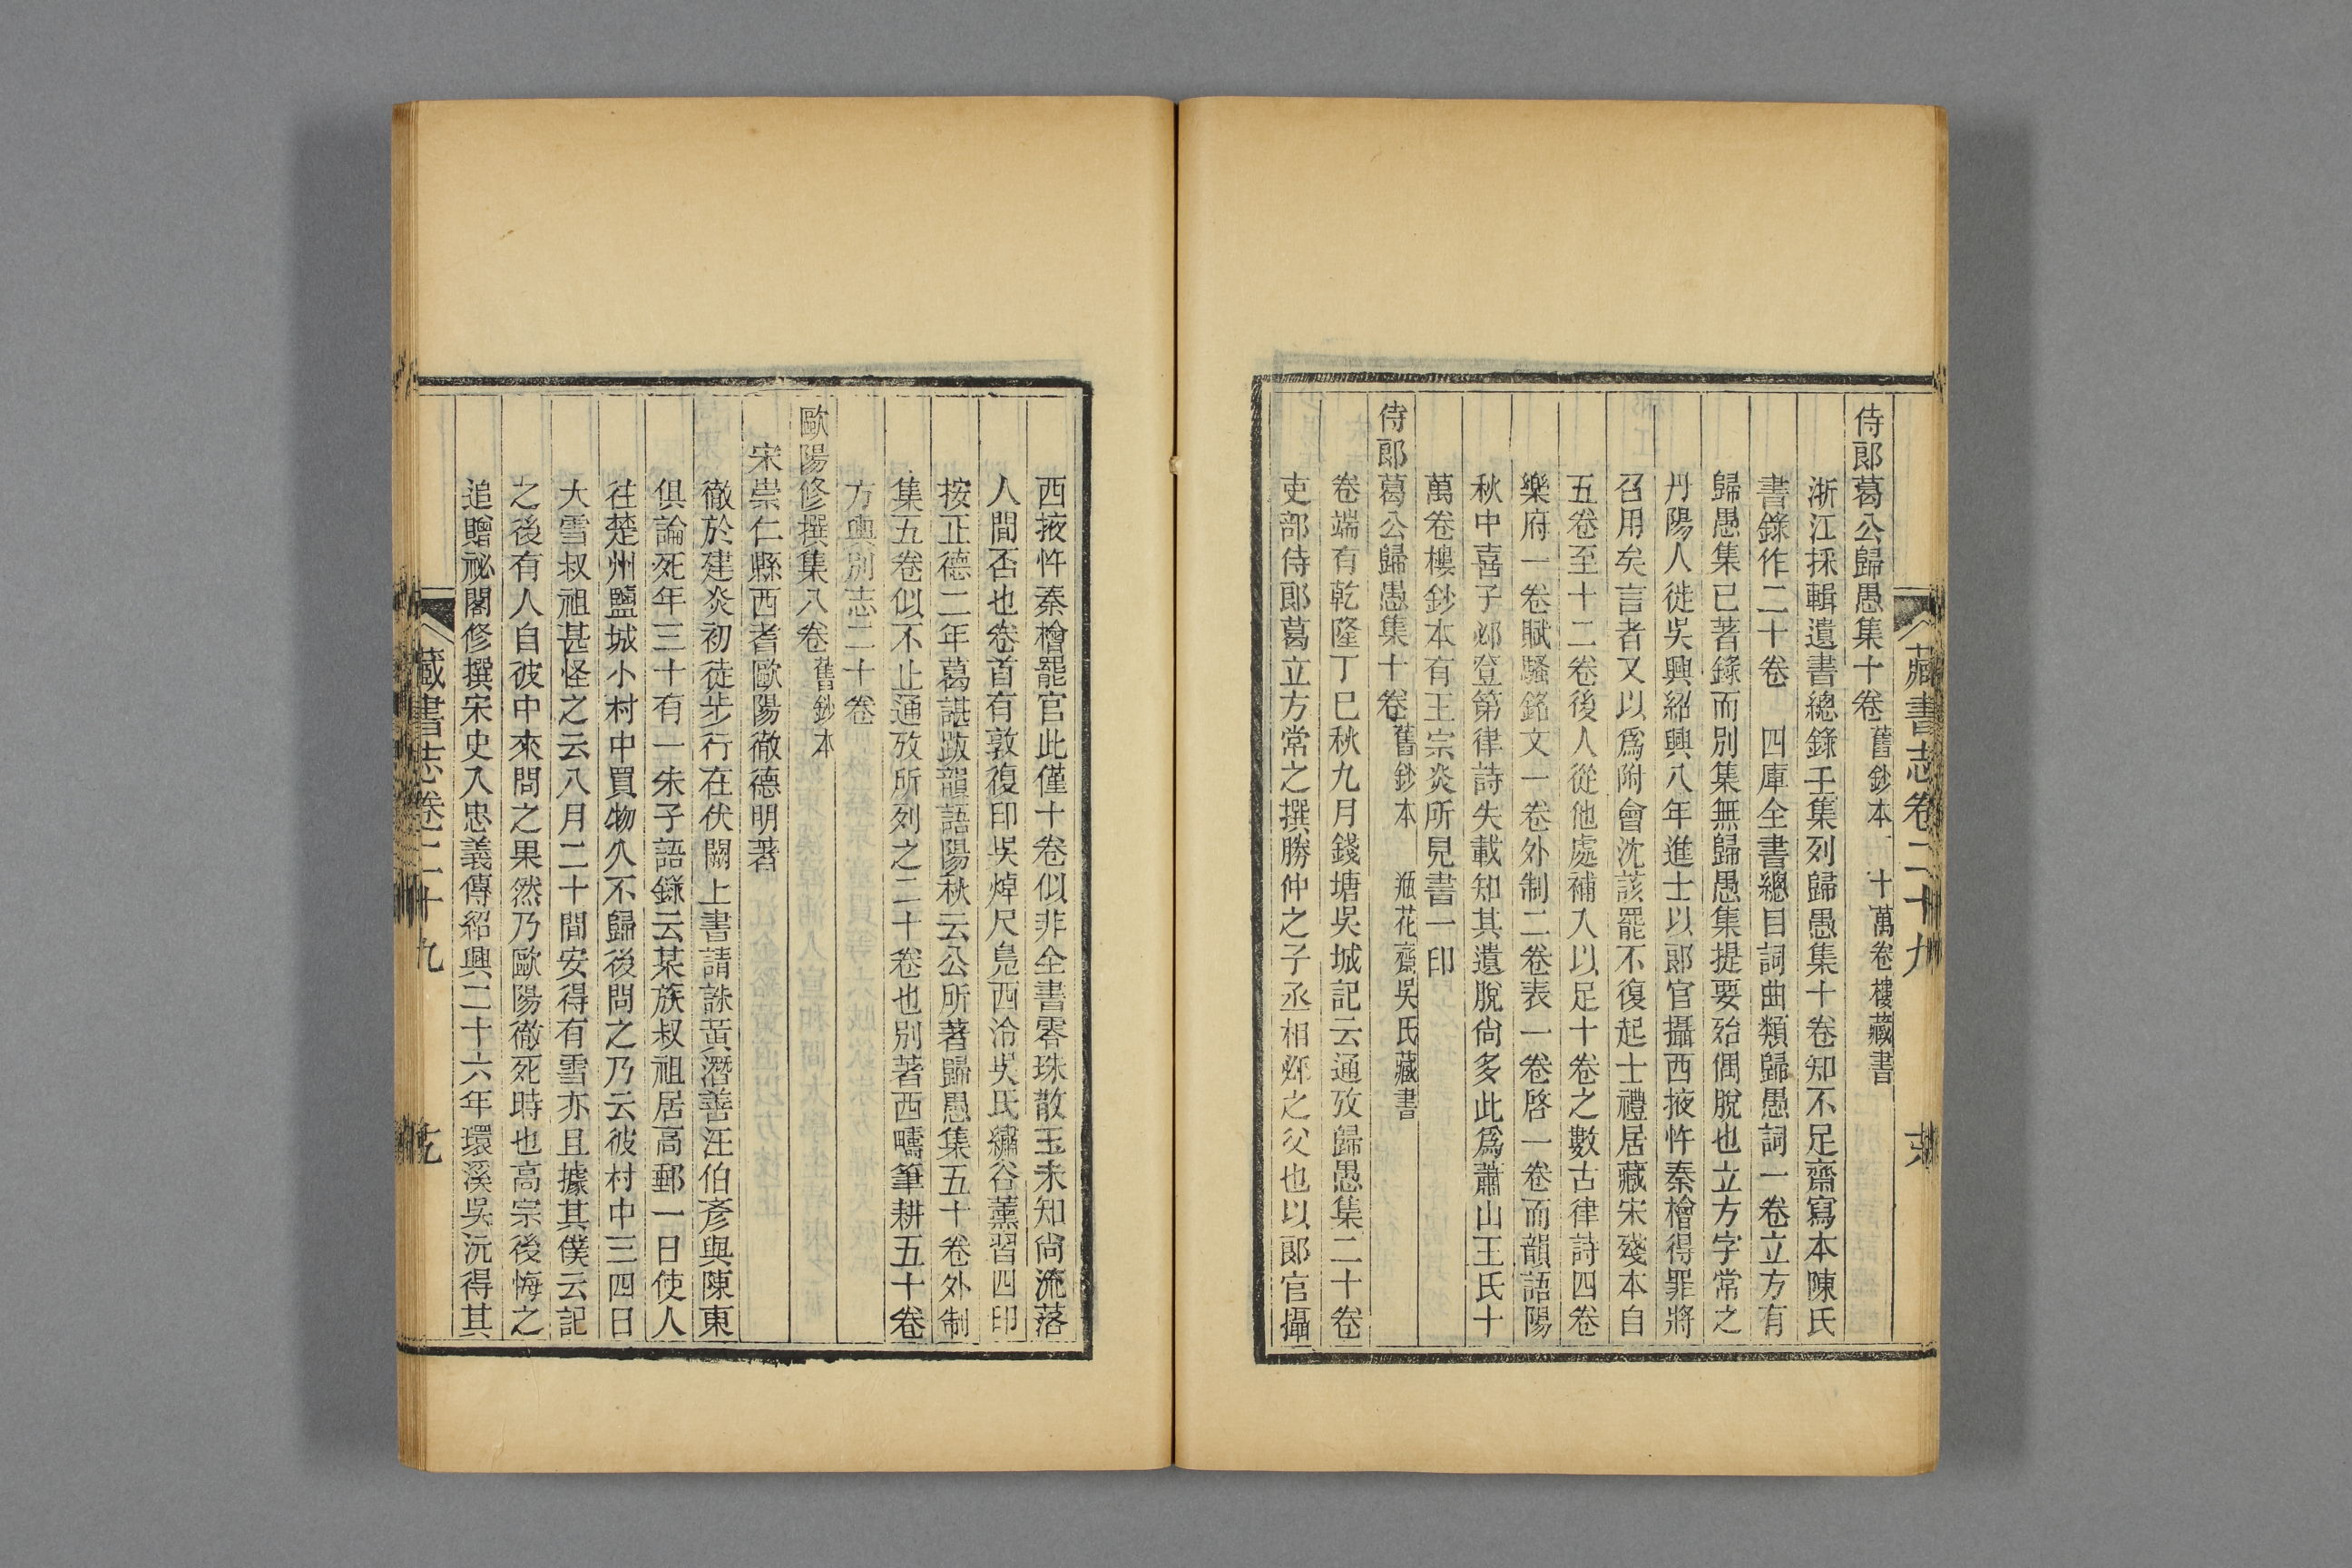 藏書志卷二十九
侍郞葛公歸愚集十卷 舊鈔本 十萬卷樓藏書
浙江採輯遺書總錄壬集列歸愚集十卷知不足齋寫本陳氏
書錄作二十卷 四庫全書總目詞曲類歸愚詞一卷立方有
歸愚集已著錄而別集無歸愚集提要殆偶脫也立方字常之
丹陽人徙吳興紹興八年進士以郞官攝西掖忤秦檜得罪將
召用矣言者又以爲附會沈該罷不復起士禮居藏宋殘本自
五卷至十二卷後人從他處補入以足十卷之數古律詩四卷
樂府一卷賦騷銘文一卷外制二卷表一卷啓一卷而韻語陽
秋中喜子邲登第律詩失載知其遺脫尙多此爲蕭山王氏十
萬卷樓鈔本有王宗炎所見書一印
侍郞葛公歸愚集十卷 舊鈔本 瓶花齋吳氏藏書
卷端有乾隆丁巳秋九月錢塘吳城記云通攷歸愚集二十卷
吏部侍郞葛立方常之撰勝仲之子丞相邲之父也以郞官攝
西掖忤秦檜罷官此僅十卷似非全書零珠散玉未知尙流落
人間否也卷首有敦復印吳焯尺鳧西泠吳氏繡谷薰習四印
按正德二年葛諶跋韻語陽秋云公所著歸愚集五十卷外制
集五卷似不止通攷所列之二十卷也別著西疇筆耕五十卷
方輿別志二十卷
歐陽修撰集八卷 舊鈔本
宋崇仁縣西耆歐陽徹德明著
徹於建炎初徒步行在伏闕上書請誅黃潛善汪伯彥與陳東
俱論死年三十有一朱子語錄云某族叔祖居高郵一日使人
往楚州鹽城小村中買物久不歸後問之乃云彼村中三四日
大雪叔祖甚怪之云八月二十間安得有雪亦且據其僕云記
之後有人自彼中來問之果然乃歐陽徹死時也高宗後悔之
追贈祕閣修撰宋史入忠義傳紹興二十六年環溪吳沆得其
藏書志卷二十九